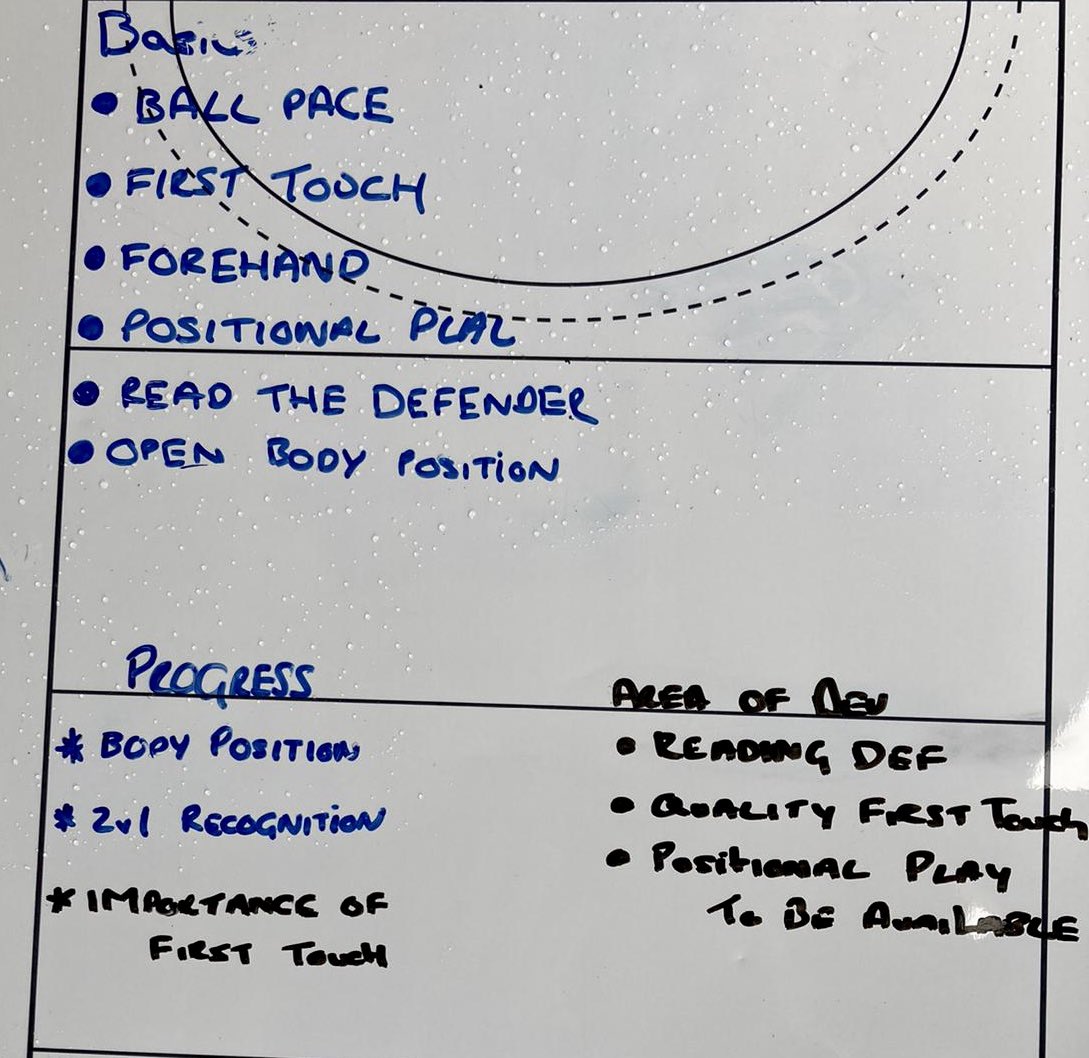 Basics
• BALL PACE
• FIRST TOUCH
• FOREHAND
• POSITIONAL PLAL
• READ THE DEFENDER
• OPEN BODY POSITION
PROGRESS
* BODY POSITION
* 2v1 RECOGNITION
* IMPORTANCE OF
FIRST TOUCH
AREA OF DEV
• READING DEF
• QUALITY FIRST TOUCH
• POSITIONAL PLAY
TO BE AVAILABLE